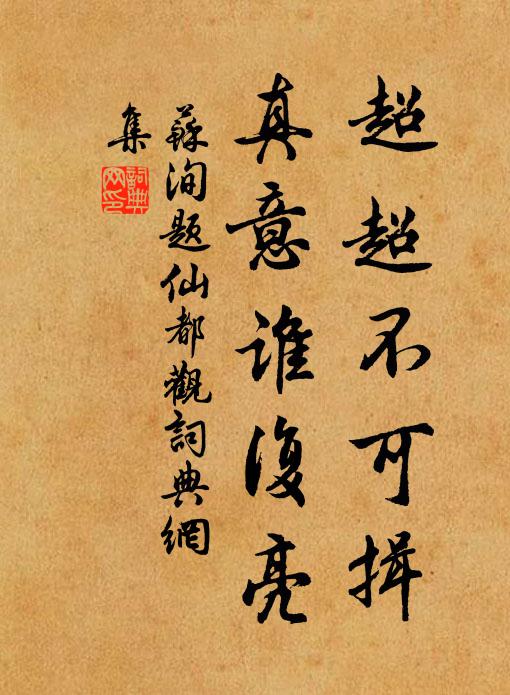 超超不可揖
真意谁復亮
蘇洵题仙都觀詞典網
集
詞典
网印